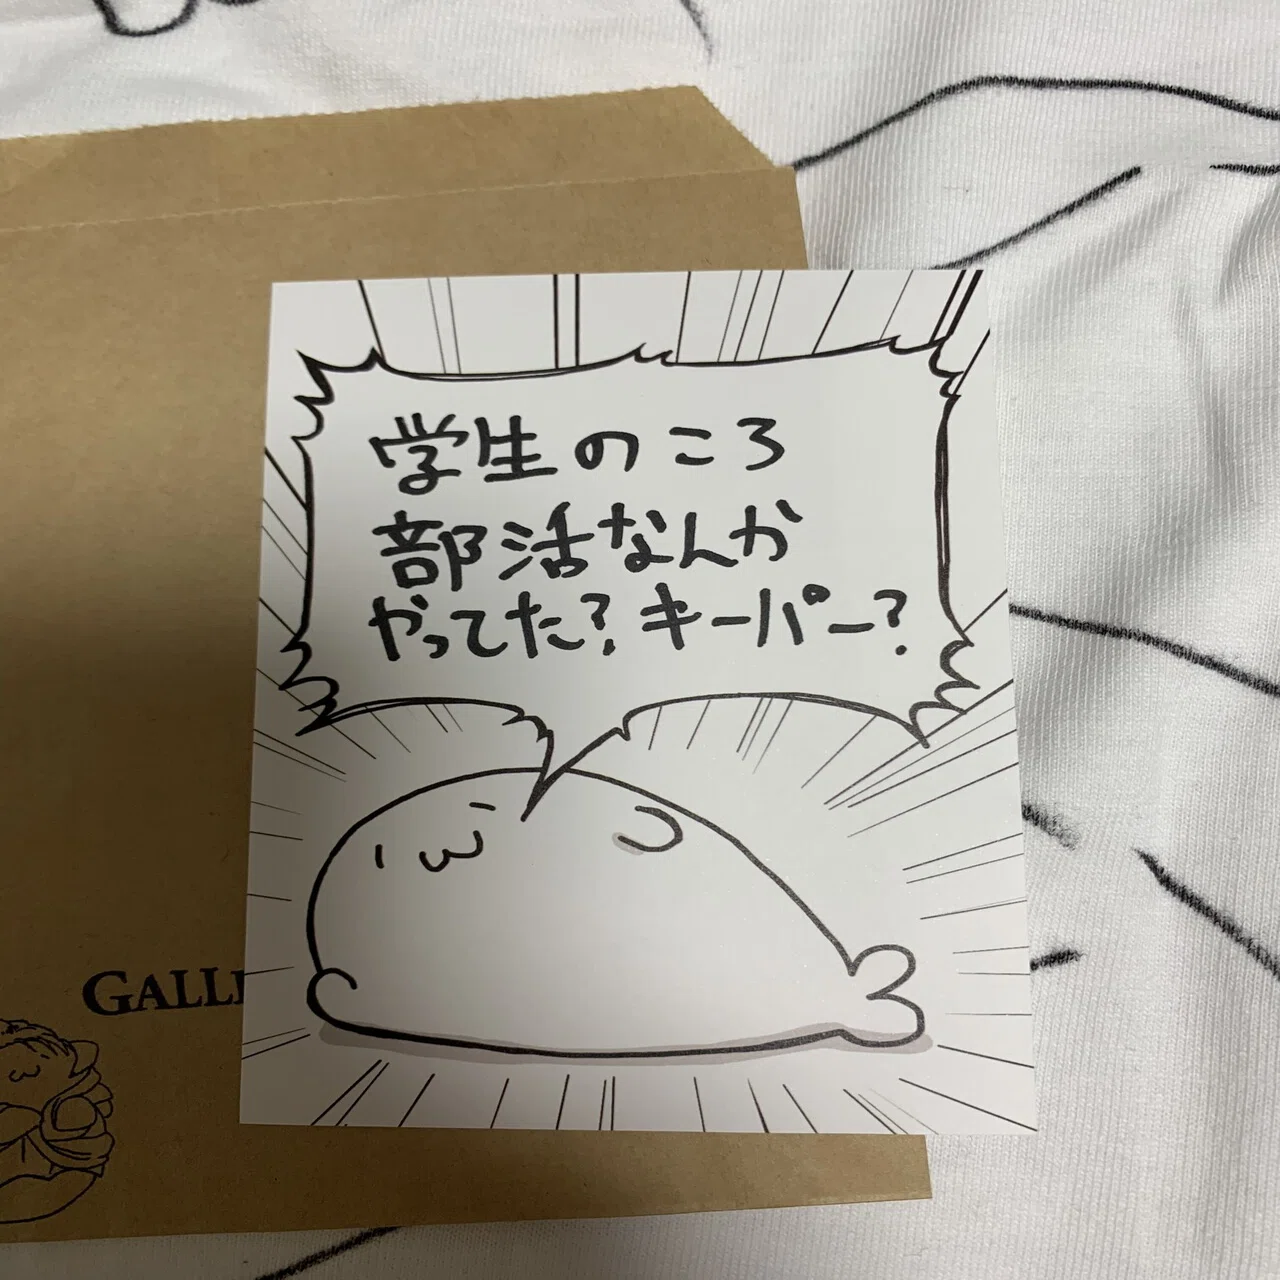 学生のころ
部活なんか
やってた？キーパー？